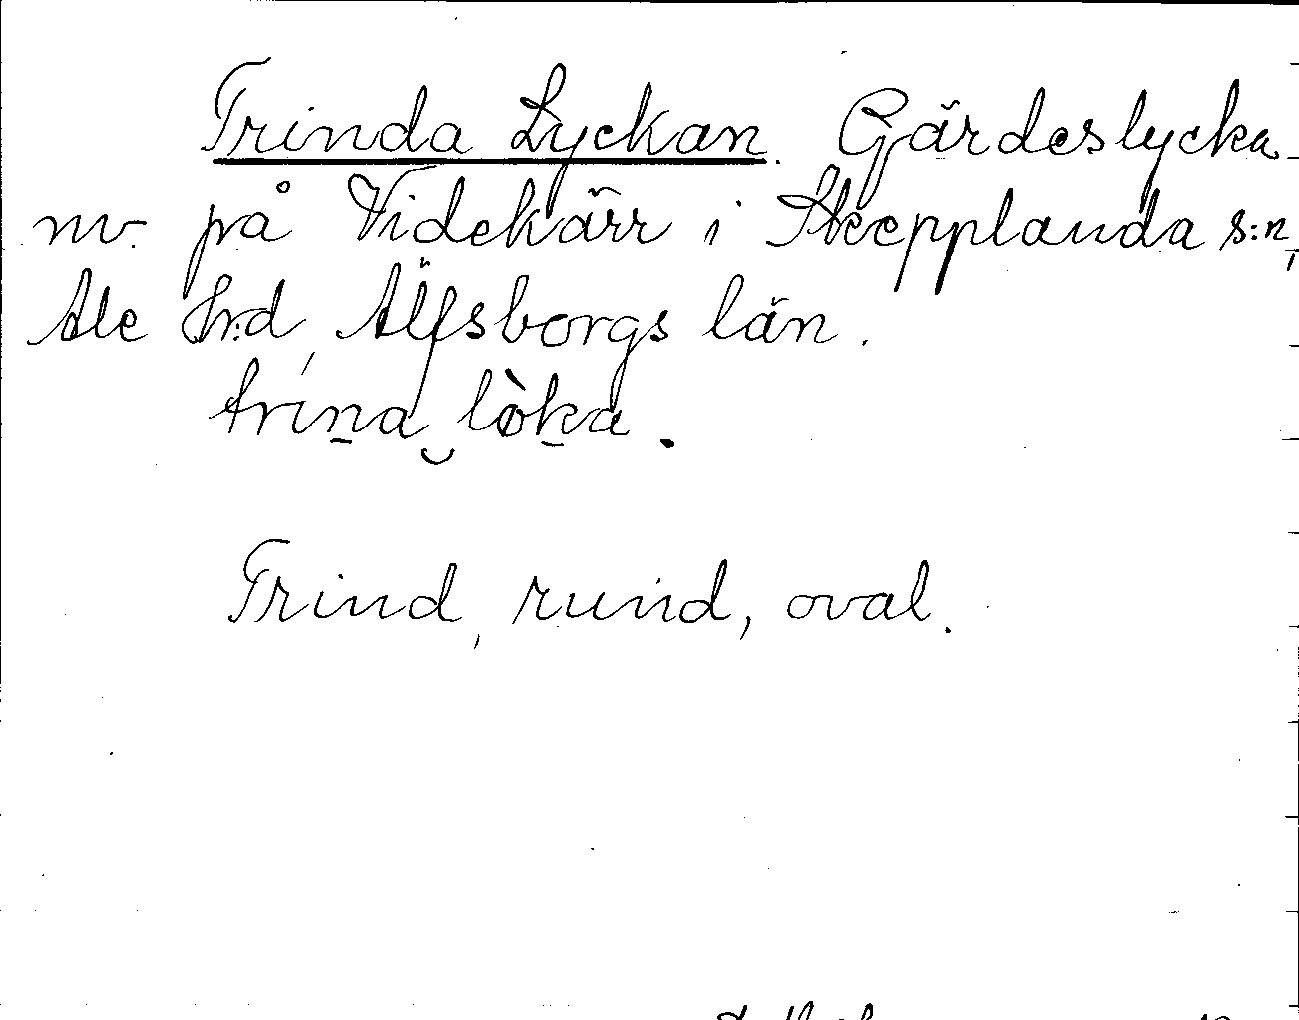 Trinda Lyckan. Gärdeslycka
nv. på Videkärr i Skepplanda s:n,
Ale hrd, Älfsborgs län.
trina löka.
Trind, rund, oval.